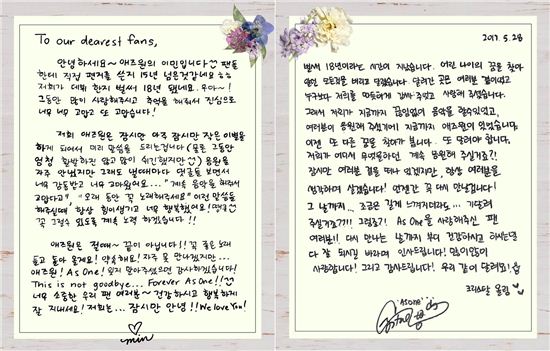 To our dearest fans,
안녕하세요~ 애즈원의 이민입니다 팬들
한테 직접 편지를 쓴지 15년 넘은것같네요 ㅎㅎ
저희가 데뷔 한지 벌써 18년 됐네요. 우아~!
그동안 많이 사랑해주시고 추억을 해줘서 진심으로
너무 너무 고맙고 또 고맙습니다!
저희 애즈원은 잠시만 아주 잠시만 작은 이별을
하게 되어서 미리 말씀을 드리는겁니다 (물론 그동안
엄청 활발하진 않고 많이 쉬긴했지만) 음원을
자주 안냈지만 그래도 낼때마다 댓글들 보면서
너무 감동받고 너무 고마워요... "계속 음악을 해줘서
고맙다고" "오래 동안 꼭 노래해주세요" 이런 말씀을
해주실때 항상 힘이생기고 너무 행복했어요!
꼭 그럴수 있도록 계속 노력 하겠습니다!!
애즈원은 절때~ 끝이 아닙니다!! 꼭 좋은 노래
들고 돌아 올게요! 약속해요! 자주 못 만나겠지만...
애즈원! As One! 잊지 말아주셨으면 감사하겠습니다!
This is not goodbye... Forever As One!!
너무 소중한 우리 팬 여러분~ 건강하시고 행복하게
잘 지내세요! 저희는... 잠시만 안녕!! We love You!
min
2017. 5. 28
벌써 18년이라는 시간이 지났습니다. 어린 나이의 꿈을 찾아
모든것을 버리고 달렸습니다. 달려간 곳은 여러분 곁이었고
누구보다 저희를 따뜻하게 감싸주었고 사랑해 주셨습니다.
그래서 저희가 지금까지 끊임없이 음악을 할수있었고,
여러분이 응원해 주셨기에 지금까지 애즈원이 있었습니다.
이젠 또 다른 꿈을 찾아가 봅니다... 또 달려야 합니다.
저희가 어디서 무엇을하던 계속 응원해 주실거죠?!
잠시만 여러분 곁을 떠나 있겠지만, 항상 여러분을
생각하며 살겠습니다! 언젠간 꼭 다시 만날겁니다!
그 날까지... 조금은 길게 느껴지더라도... 기다려
주실거죠??! 그렇죠?! As One을 사랑해주신 팬
여러분!! 다시 만나는 그 날까지 부디 건강하시고 하시는일
다 잘 되시길 바라며 인사드립니다! 많이많이
사랑합니다! 그리고 감사드립니다! 우리 같이 달려요!
크리스탈 올림
AS ONE